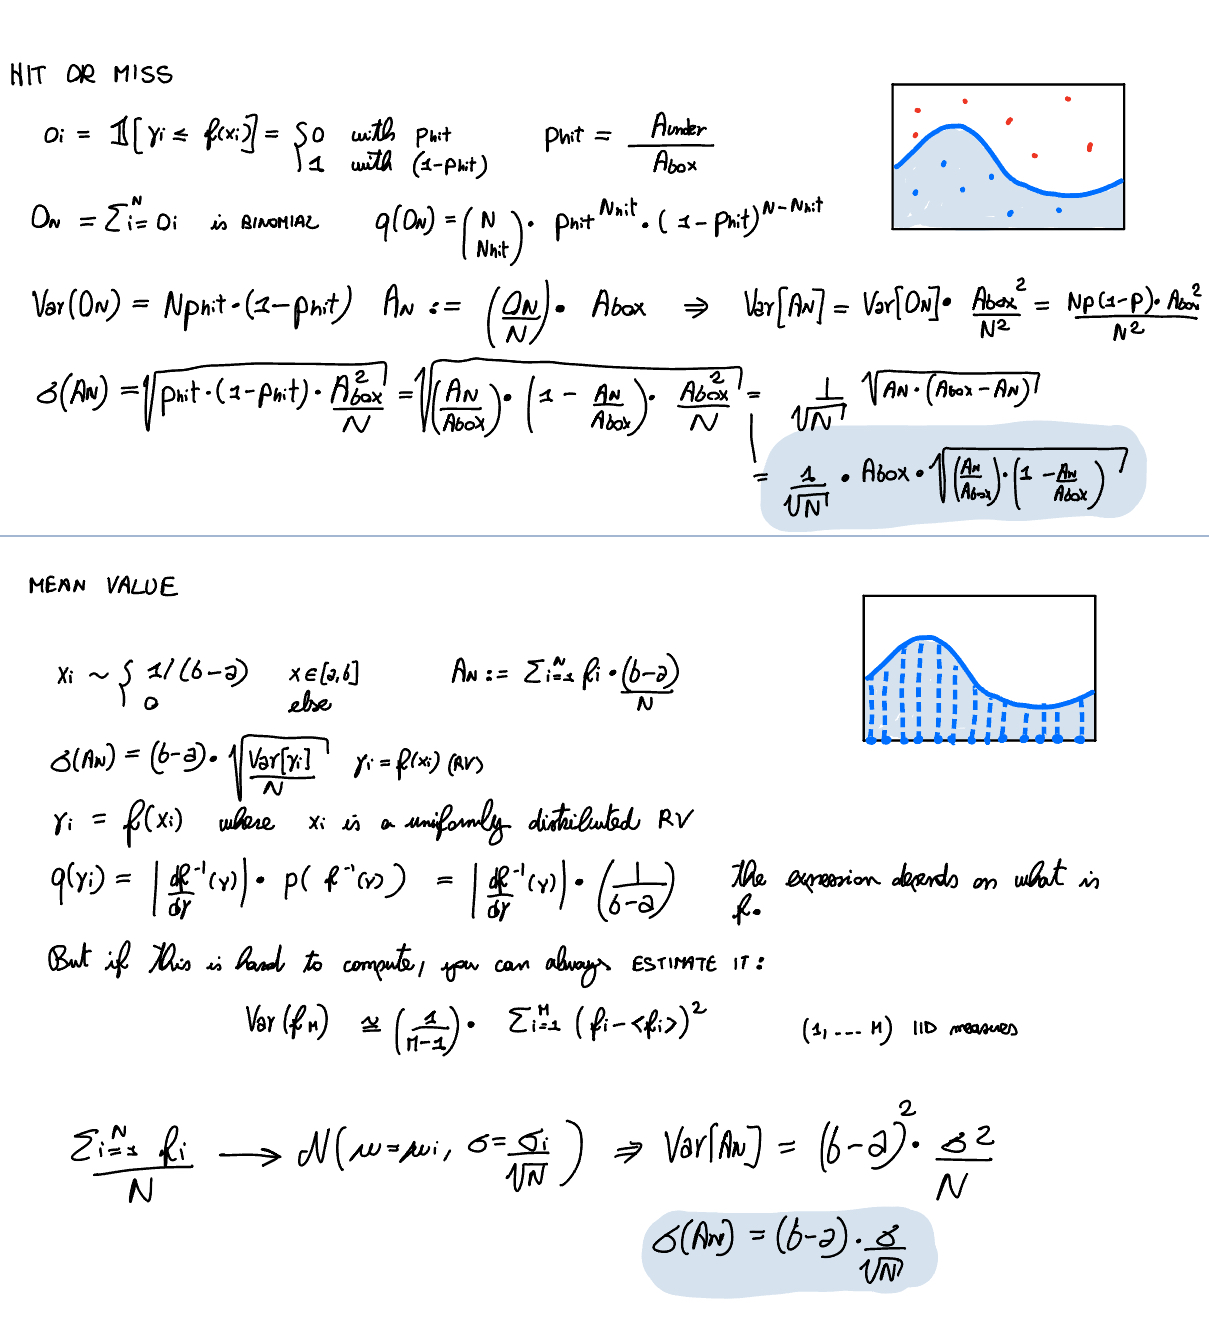 HIT OR MISS
oi = 𝟙[yi ≤ f(xi)] = { 0 with phit
1 with (1-phit)
phit = Aunder / Abox
ON = Σi=^N oi is BINOMIAL q(ON) = (N Nhit) · phit^Nhit · (1-phit)^N-Nhit
Var(ON) = Nphit·(1-phit) AN := (ON/N)· Abox ⇒ Var[AN] = Var[ON]· Abox²/N² = Np(1-p)·Abox²/N²
σ(AN) = √(phit·(1-phit)· Abox²/N) = √((AN/Abox)·(1 - AN/Abox)· Abox²/N) = 1/√N √(AN·(Abox-AN))
= 1/√N · Abox · √((AN/Abox)·(1 - AN/Abox))
MEAN VALUE
xi ~ { 1/(b-a) x∈[a,b]
0 else
AN := Σi=1^N fi · (b-a)/N
σ(AN) = (b-a)· √(Var[yi]/N) yi = f(xi) (RV)
yi = f(xi) where xi is a uniformly distributed RV
q(yi) = |df⁻¹(y)/dy| · p( f⁻¹(y) ) = |df⁻¹(y)/dy| · (1/(b-a)) the expression depends on what is
f.
But if this is hard to compute, you can always ESTIMATE IT:
Var(fM) ≅ (1/(M-1))· Σi=1^M (fi-<fi>)² (1, ... M) IID measures
Σi=1^N fi / N ⟶ N(μ=μi, σ=σi/√N) ⇒ Var[AN] = (b-a)² · σ²/N
σ(AN) = (b-a)· σ/√N